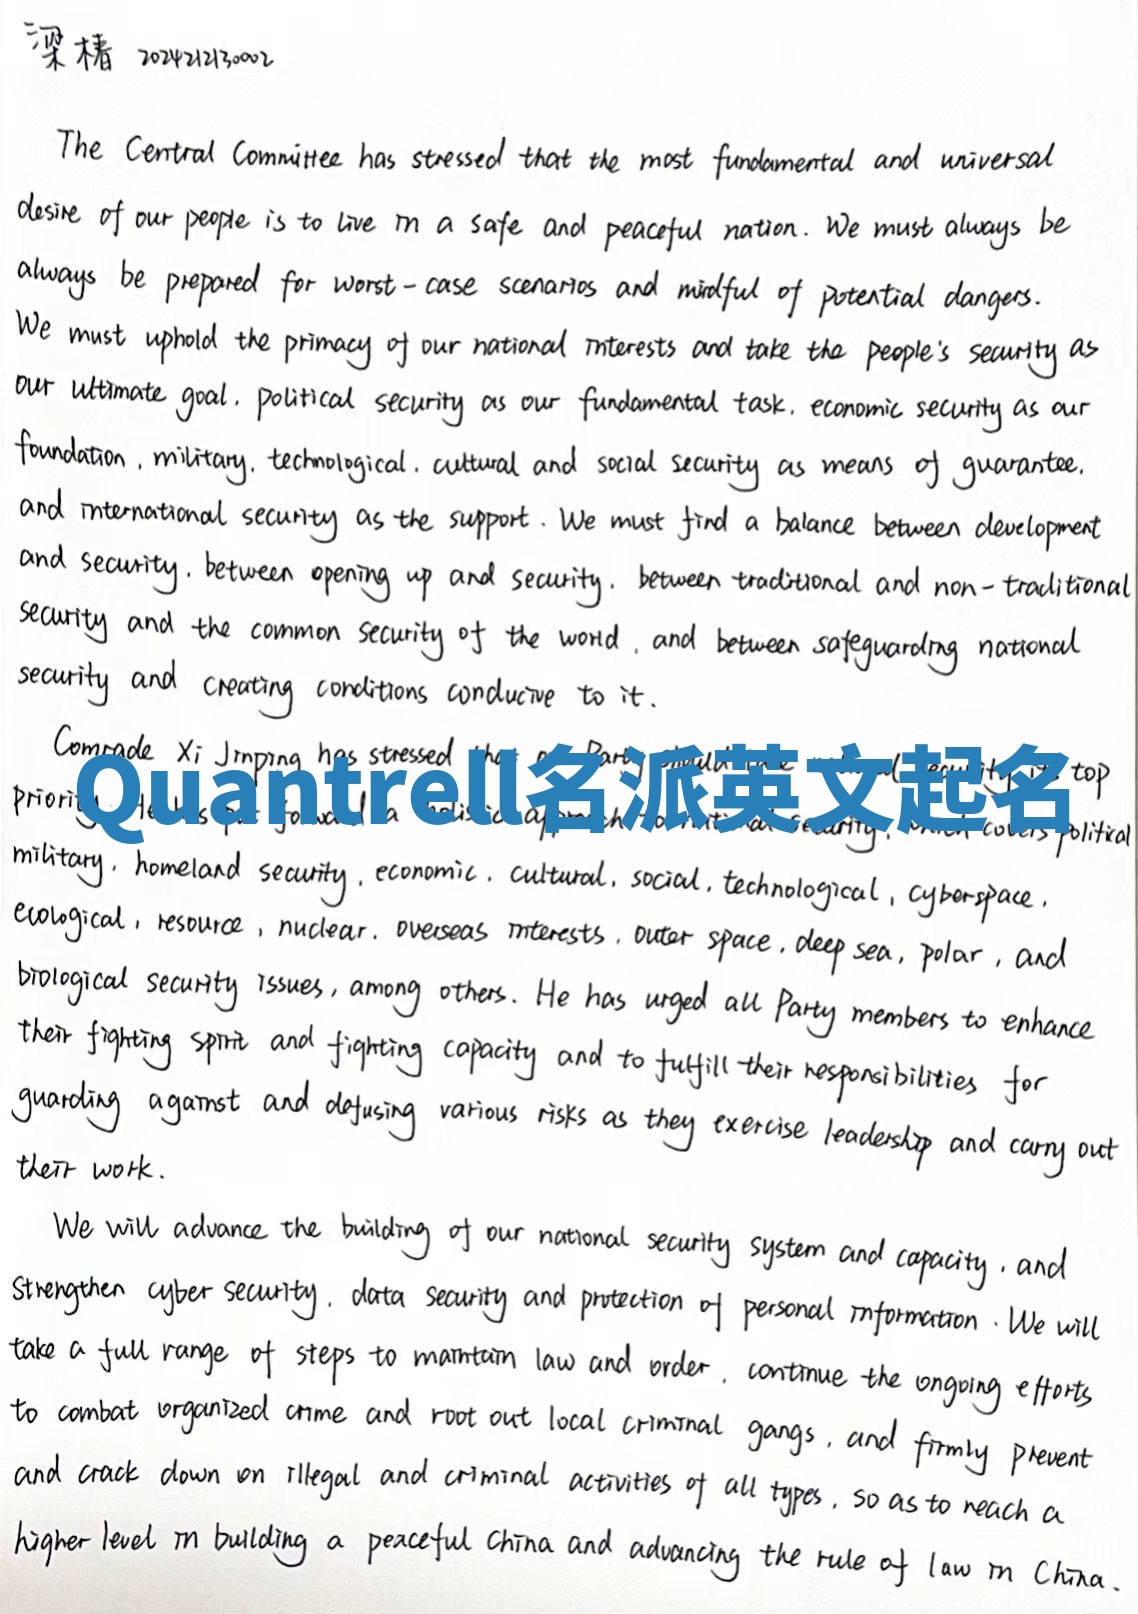 梁椿 2024212130002
The Central Committee has stressed that the most fundamental and universal
desire of our people is to live in a safe and peaceful nation. We must always be
always be prepared for worst-case scenarios and mindful of potential dangers.
We must uphold the primacy of our national interests and take the people's security as
our ultimate goal, political security as our fundamental task, economic security as our
foundation, military, technological, cultural and social security as means of guarantee,
and international security as the support. We must find a balance between development
and security, between opening up and security, between traditional and non-traditional
security and the common security of the world, and between safeguarding national
security and creating conditions conducive to it.
Comrade Xi Jinping has stressed that Party should security its top
Quantrell名派英文起名
priority. He has put forward a holistic approach to national security, which covers political
military, homeland security, economic, cultural, social, technological, cyberspace,
ecological, resource, nuclear, overseas interests, outer space, deep sea, polar, and
biological security issues, among others. He has urged all Party members to enhance
their fighting spirit and fighting capacity and to fulfill their responsibilities for
guarding against and defusing various risks as they exercise leadership and carry out
their work.
We will advance the building of our national security system and capacity, and
strengthen cyber security, data security and protection of personal information. We will
take a full range of steps to maintain law and order, continue the ongoing efforts
to combat organized crime and root out local criminal gangs, and firmly prevent
and crack down on illegal and criminal activities of all types, so as to reach a
higher level in building a peaceful China and advancing the rule of law in China.